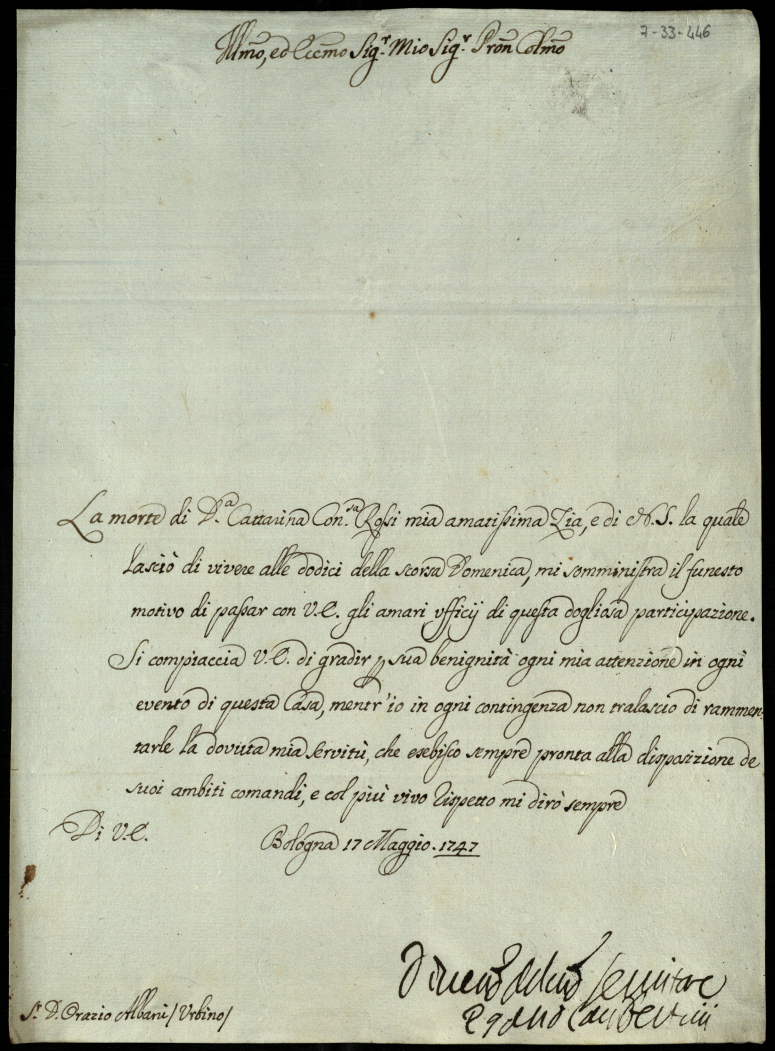 7-33-446
Illmo, ed Eccmo Sigr. Mio Sigr. Pron Colmo
La morte di D.a Cattarina Con.sa Rossi mia amatissima Zia, e di N.S. la quale
lasciò di vivere alle dodici della scorsa Domenica, mi somministra il funesto
motivo di passar con V.E. gli amari ufficij di questa dogliosa participazione.
Si compiaccia V.E. di gradir p sua benignità ogni mia attenzione in ogni
evento di questa Casa, mentr'io in ogni contingenza non tralascio di rammen-
tarle la dovuta mia servitù, che esebisco sempre pronta alla disposizione de
suoi ambiti comandi, e col più vivo rispetto mi dirò sempre
Di V.E.
Bologna 17 Maggio. 1747
Servitore
Egano Lambertini
Sr. D. Orazio Albani / Urbino /